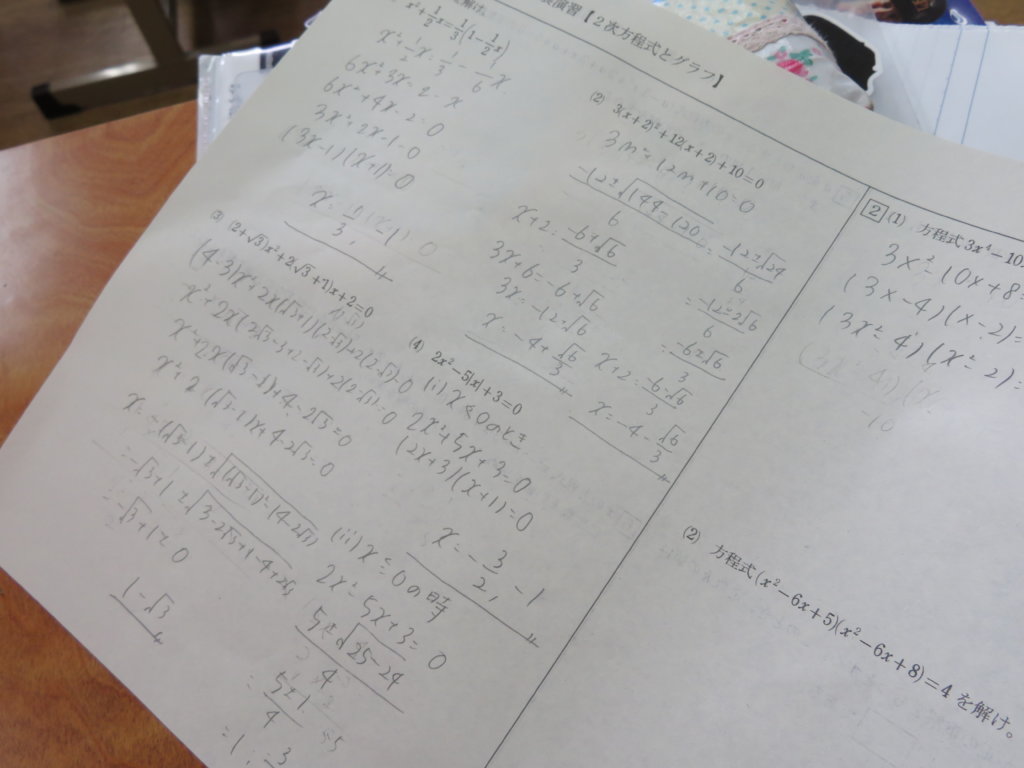 演習【2次方程式とグラフ】
x²+1/2x=1/3(1-1/2x)
x²+1/2x=1/3-1/6x
6x²+3x=2-x
6x²+4x-2=0
3x²+2x-1=0
(3x-1)(x+1)=0
(2) 3(x+2)²+12(x+2)+10=0
3m²+12m+10=0
-12±√144-120/6=-12±√24/6
=-12±2√6/6
=-6±√6/3
x+2=-6+√6/3
3x+6=-6+√6
3x=-12+√6
x=-4+√6/3
x+2=-6-√6/3
x=-4-√6/3
(3) (2+√3)x²+2(√3+1)x+2=0
(4-3)x²+2x(√3+1)(2-√3)+2(2-√3)=0
x²+2x(2√3-3+2-√3)+2(2-√3)=0
x²+2x(√3-1)+4-2√3=0
x²+2(√3-1)x+4-2√3=0
x=-(√3-1)±√(√3-1)²-(4-2√3)
=-√3+1±√3-2√3+1-4+2√3
=-√3+1±0
1-√3
(4) 2x²-5|x|+3=0
2x²+5x+3=0
(2x+3)(x+1)=0
x=-3/2,-1
(ii) x≧0の時
2x²-5x+3=0
5±√25-24/4
=5±1/4
=1,3
2 (1) 方程式3x⁴-10x
3x²-10x+8=
(3x-4)(x-2)=
(3x²-4)(x²-2)=
(2) 方程式(x²-6x+5)(x²-6x+8)=4を解け。